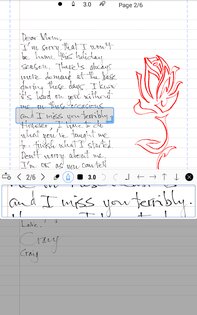 3.0 Page 2/6
Dear Mom,
I'm sorry that I won't
be home this holiday
season. There's always
more demand at the base
during these days. I know
it's hard on you without
me on these occasions
and I miss you terribly.
However, I
what you've taught me
to finish what I started
Don't worry about me.
I'm ok as you can tell
2/6 3.0
and I miss you terribly.
Gary